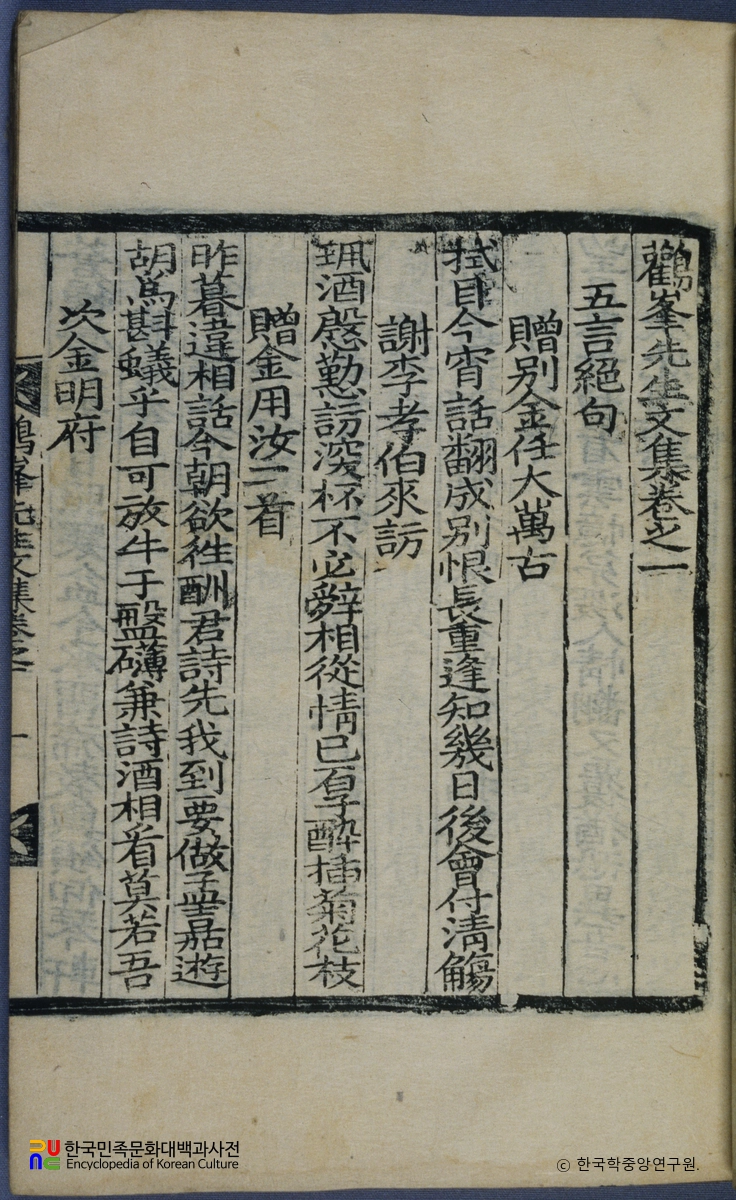 鶴峯先生文集卷之一
五言絕句
贈別金任大萬古
拭目今宵話翻成別恨長重逢知幾日後會付淸觴
謝李孝伯來訪
珮酒慇懃訪深杯不必辭相從情已厚子酔揷菊花枝
贈金用汝二首
昨暮違相話今朝欲徃酬君詩先我到要做孟嘉遊
胡爲斟蟻乎自可放牛于盤礴兼詩酒相看莫若吾
次金明府
鶴峯先生文集卷之一
一
한국민족문화대백과사전
Encyclopedia of Korean Culture
ⓒ 한국학중앙연구원.